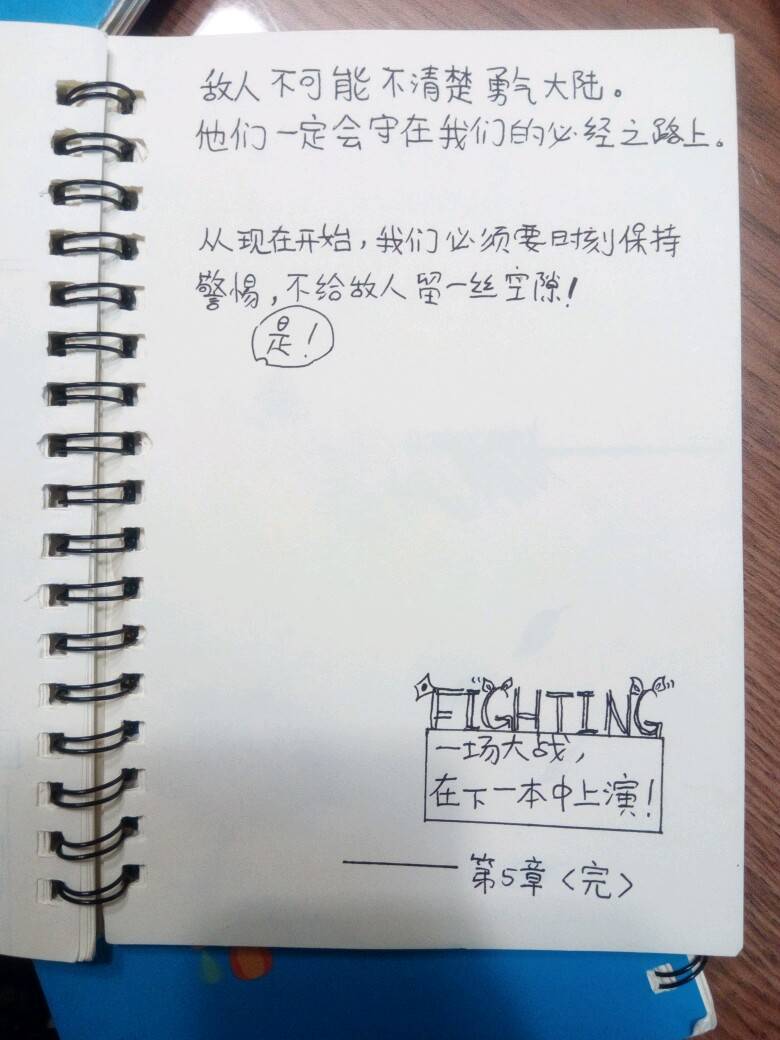 敌人不可能不清楚勇气大陆。
他们一定会守在我们的必经之路上。
从现在开始，我们必须要时刻保持
警惕，不给敌人留一丝空隙！
是！
FIGHTING
一场大战，
在下一本中上演！
——第5章〈完〉